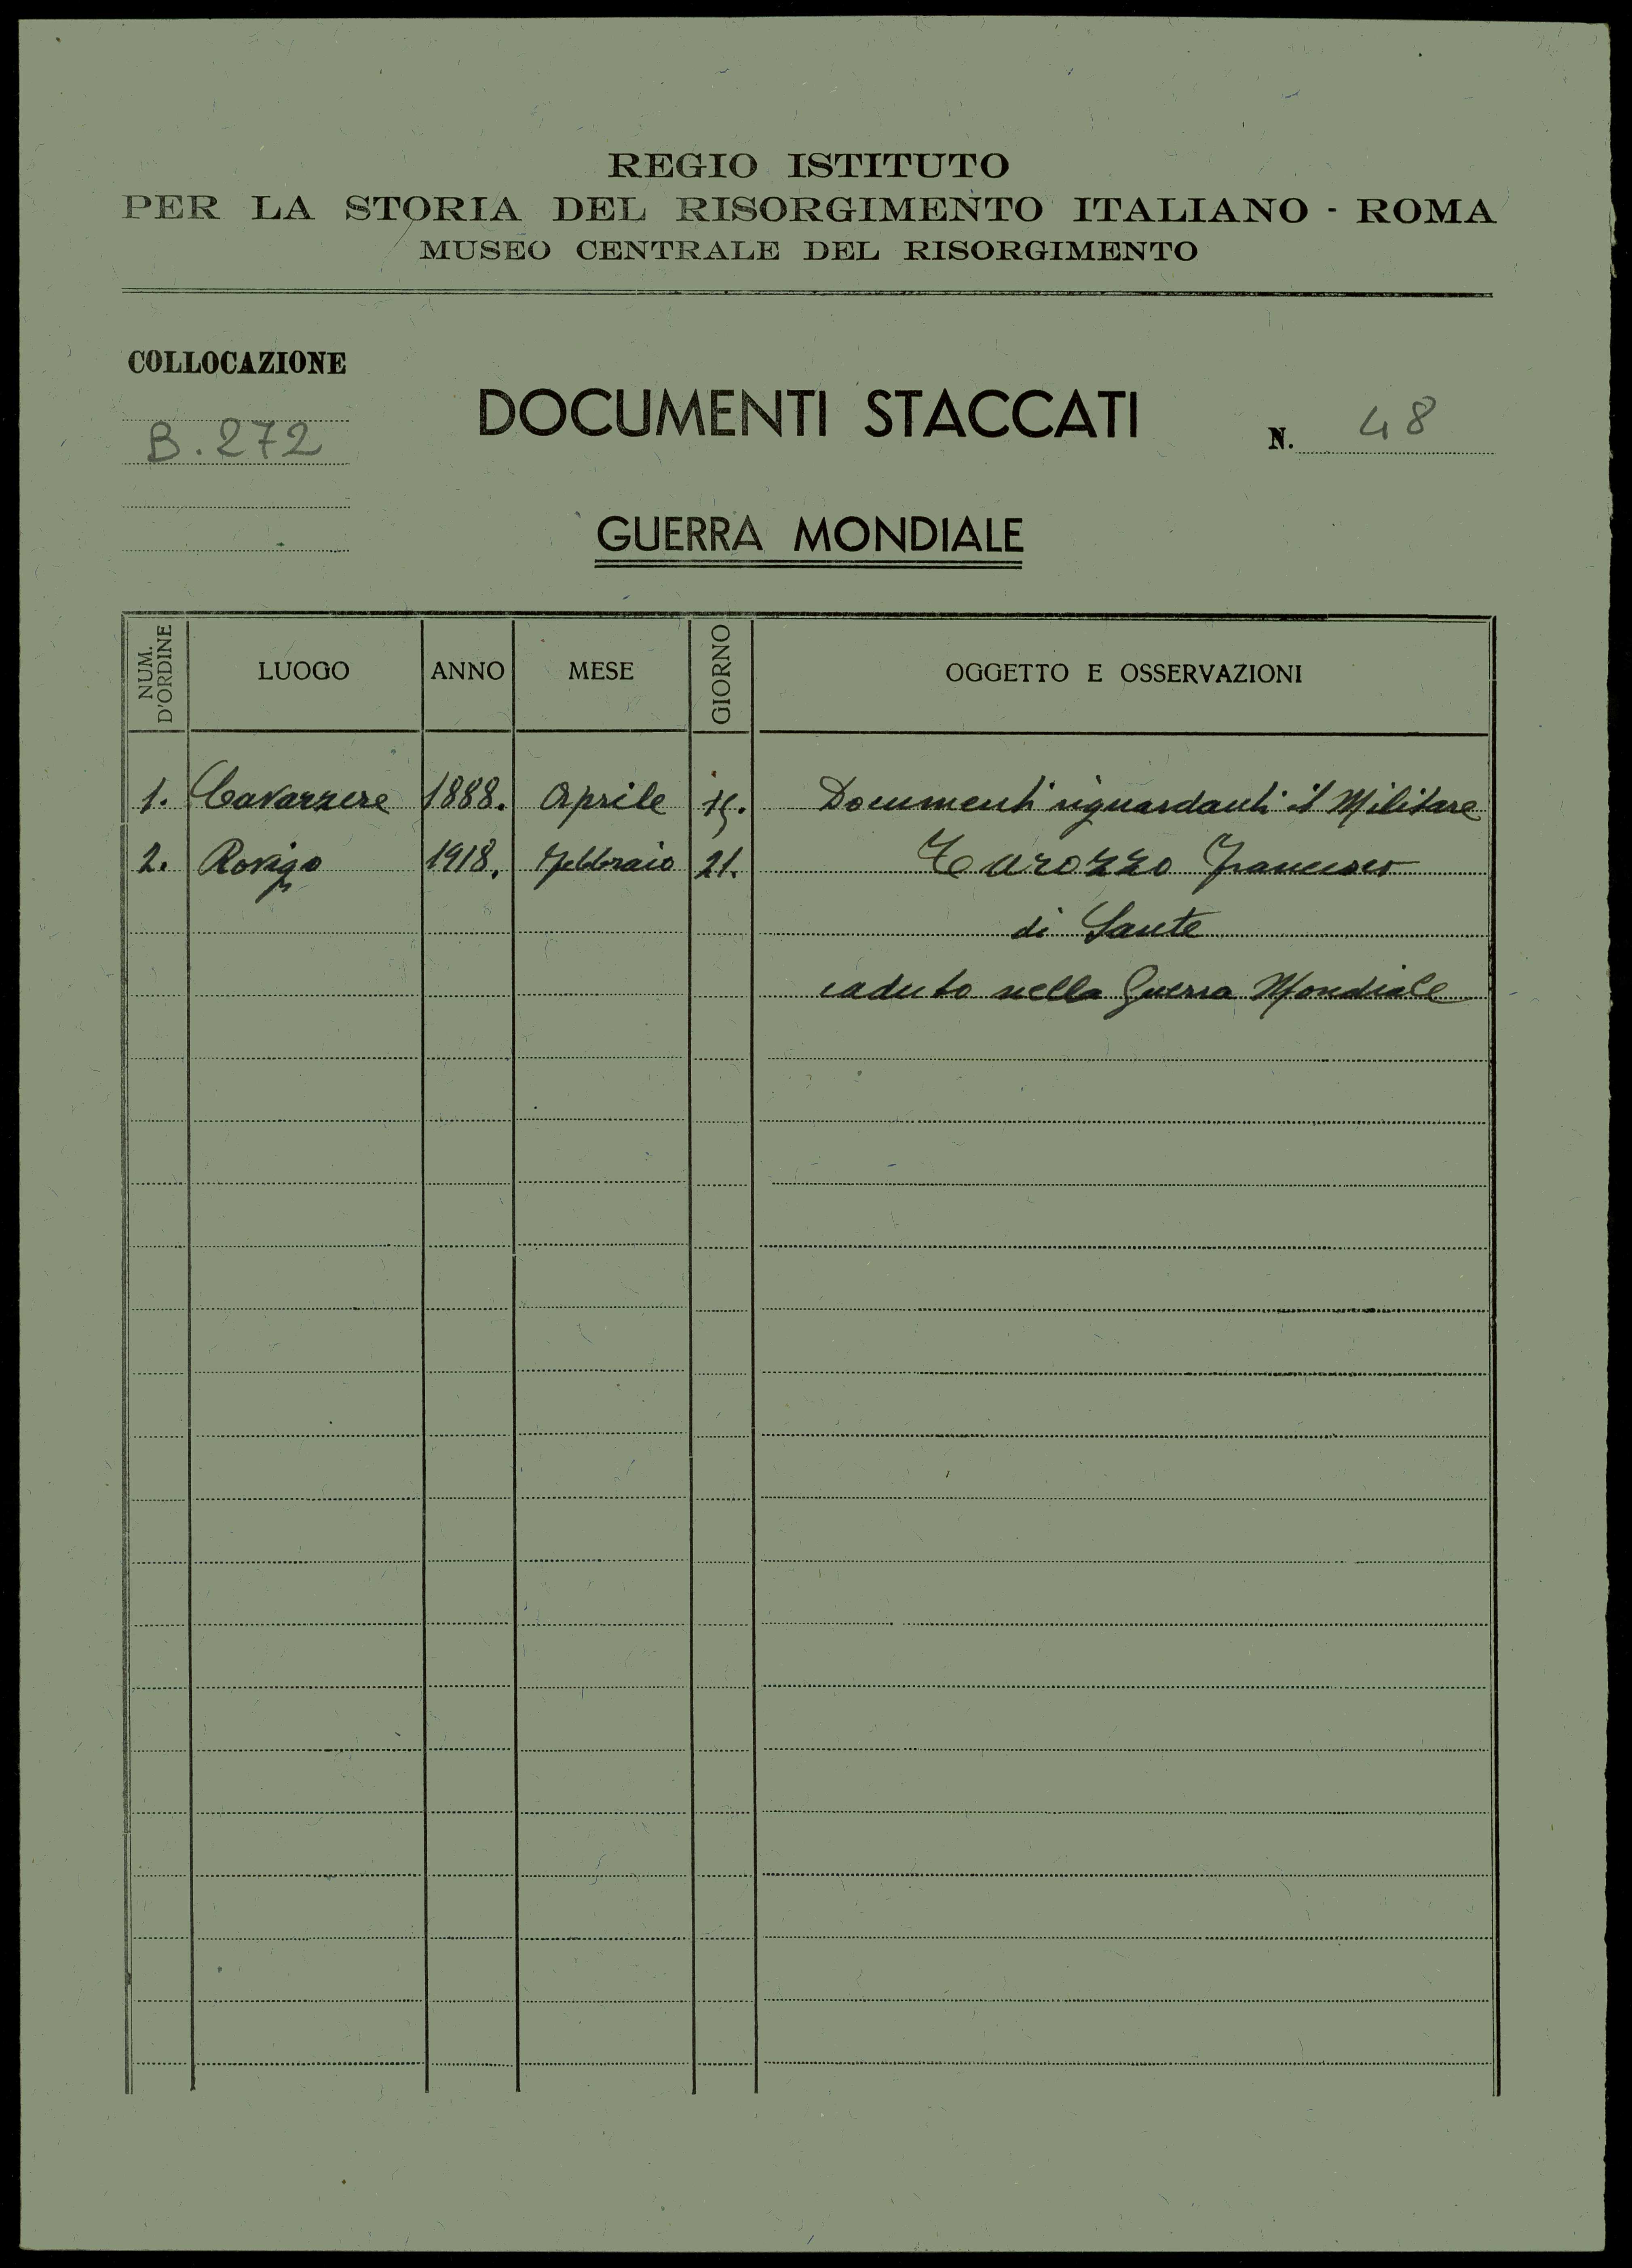 REGIO ISTITUTO
PER LA STORIA DEL RISORGIMENTO ITALIANO - ROMA
MUSEO CENTRALE DEL RISORGIMENTO
COLLOCAZIONE
B. 272
DOCUMENTI STACCATI
N. 48
GUERRA MONDIALE
NUM. D'ORDINE LUOGO ANNO MESE GIORNO OGGETTO E OSSERVAZIONI
1. Cavarzere 1888. Aprile Documenti riguardanti il Militare
2. Rovigo 1918. Febbraio 21. Carozzo Francesco
di Sante
caduto nella Guerra Mondiale